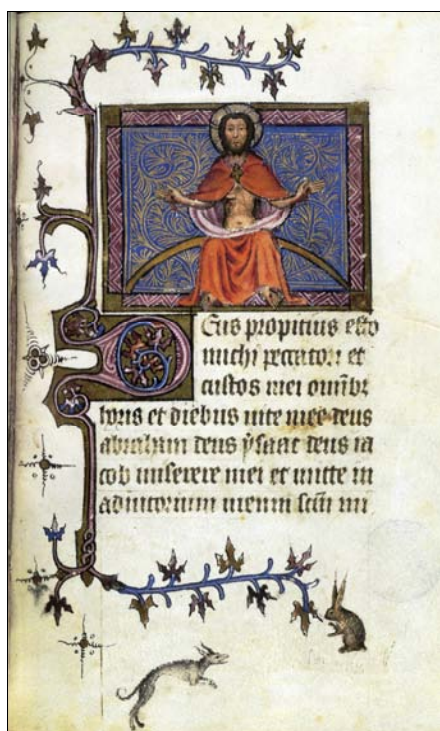 Deus propitius esto
michi peccatori et
custos mei omnibz
horis et diebus vite mee deus
abraham deus ẏsaac deus ia
cob miserere mei et mitte in
adiutorium meum scūm mi